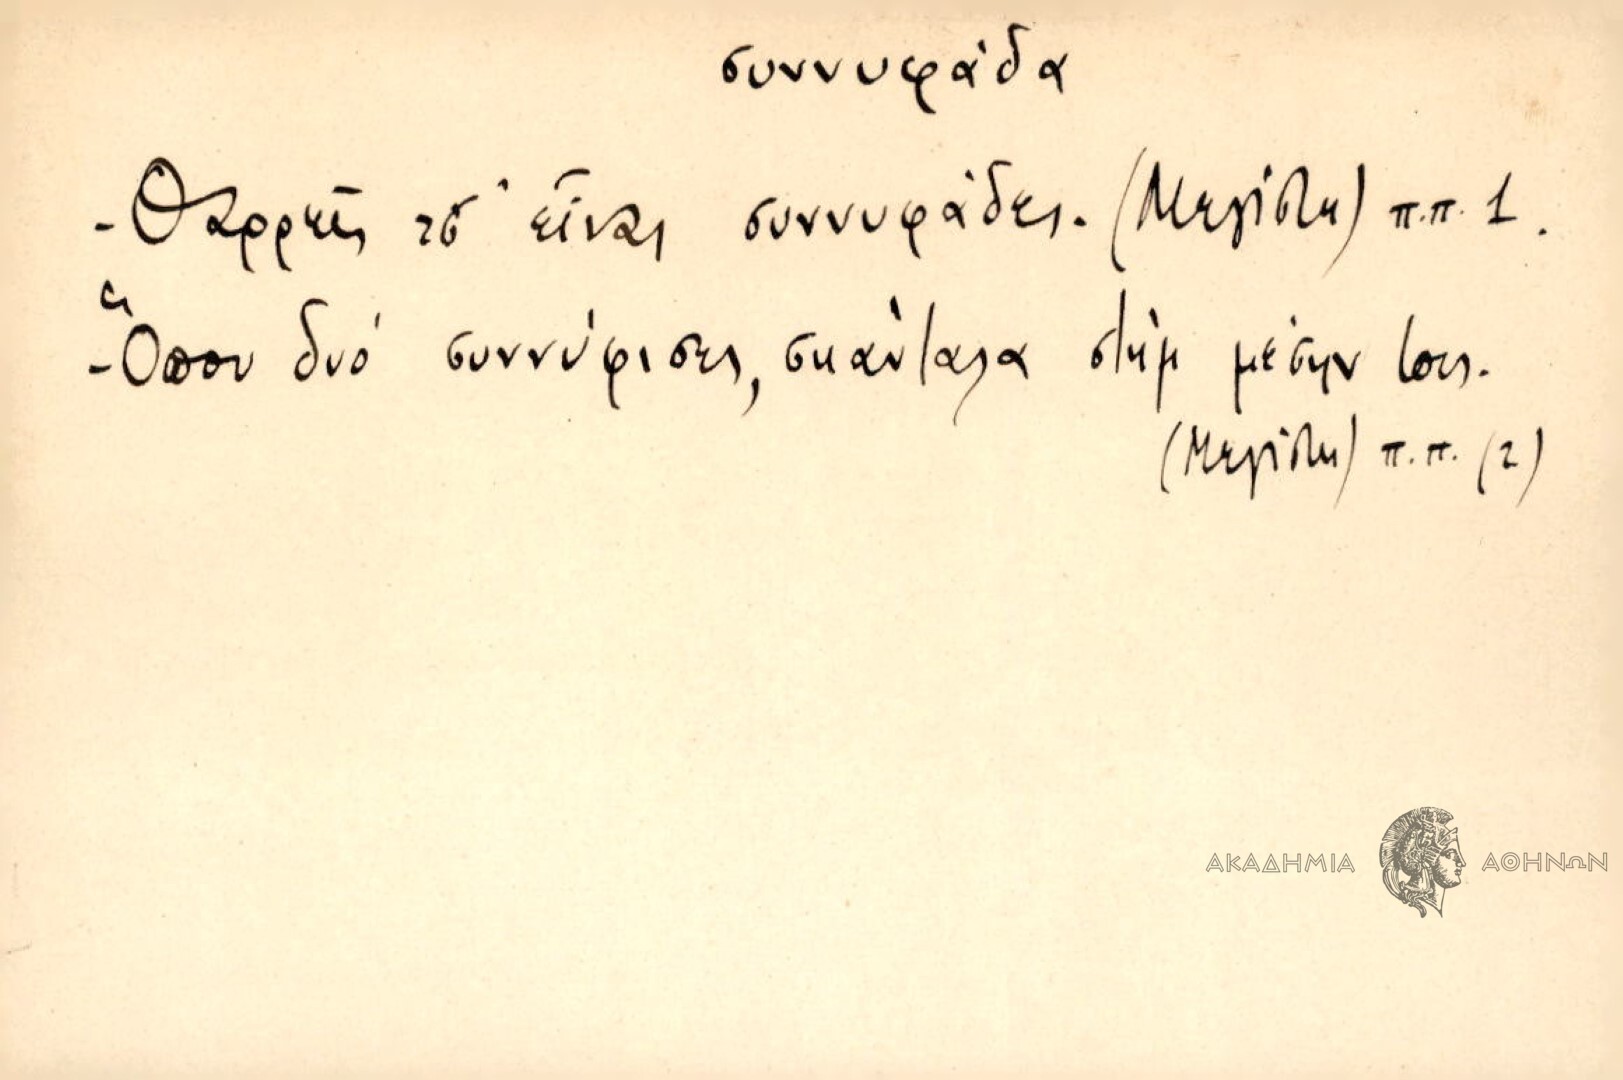 συννυφάδα
- Θαρρεῖς τσ' εἶναι συννυφάδες. (Μεγίστη) π.π. 1.
- Ὅπου δυό συννύφισες, σκάνταλα στήμ μέσην τσες.
(Μεγίστη) π.π. (2)
ΑΚΑΔΗΜΙΑ ΑΘΗΝΩΝ